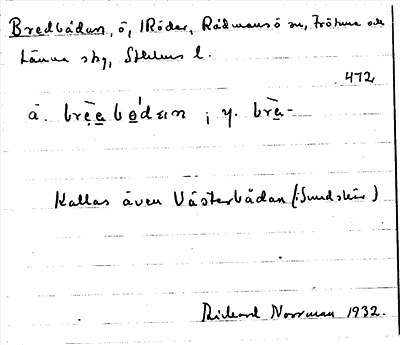 Bredbådan, ö, IRödar, Rådmansö sn, Frötuna och
Länna skg, Sthlms l.
472
ä. brèa bo'dan ; y. brà-
Kallas även Västerbådan (: Sundskär)
Rickard Norrman 1932.